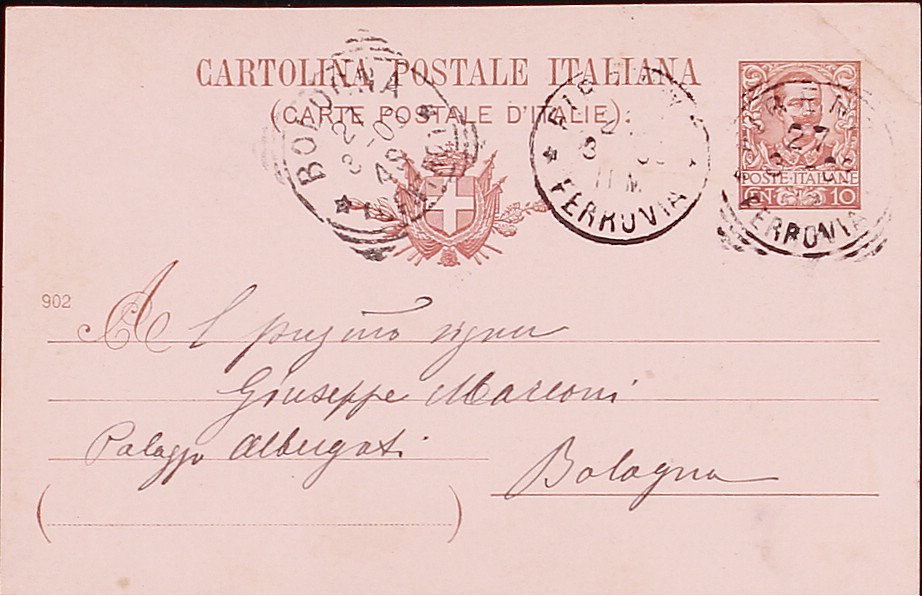 CARTOLINA POSTALE ITALIANA
(CARTE POSTALE D'ITALIE)
BOLOGNA
FERROVIA
11 M
27
FERROVIA
POSTE·ITALIANE
10
902
Al pregmo signor
Giuseppe Marconi
Palazzo Albergati
Bologna